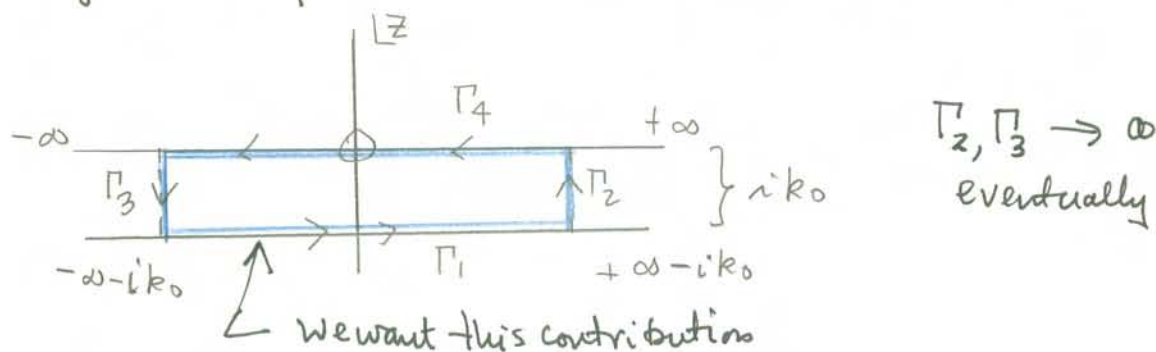 z
Γ₄
-∞
+∞
Γ₂, Γ₃ → ∞
Γ₃
Γ₂
} ik₀
eventually
-∞-ik₀
Γ₁
+∞-ik₀
we want this contribution